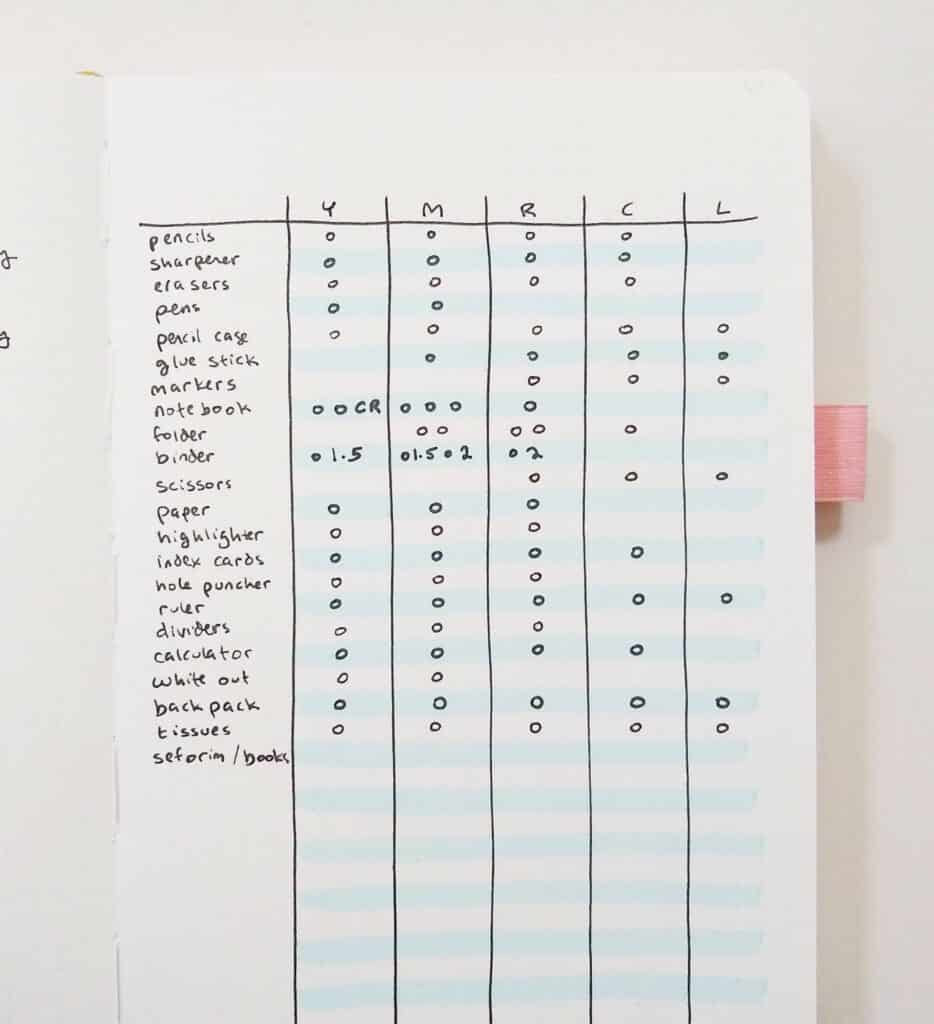 Y M R C L
pencils o o o o
sharpener o o o o
erasers o o o o
pens o o
pencil case o o o o o
glue stick o o o o
markers o o o
notebook o o CR o o o o
folder o o o o o
binder o 1.5 o 1.5 o 2 o 2
scissors o o o
paper o o o
highlighter o o o
index cards o o o o
hole puncher o o o
ruler o o o o o
dividers o o o
calculator o o o o
white out o o
back pack o o o o o
tissues o o o o o
seforim / books